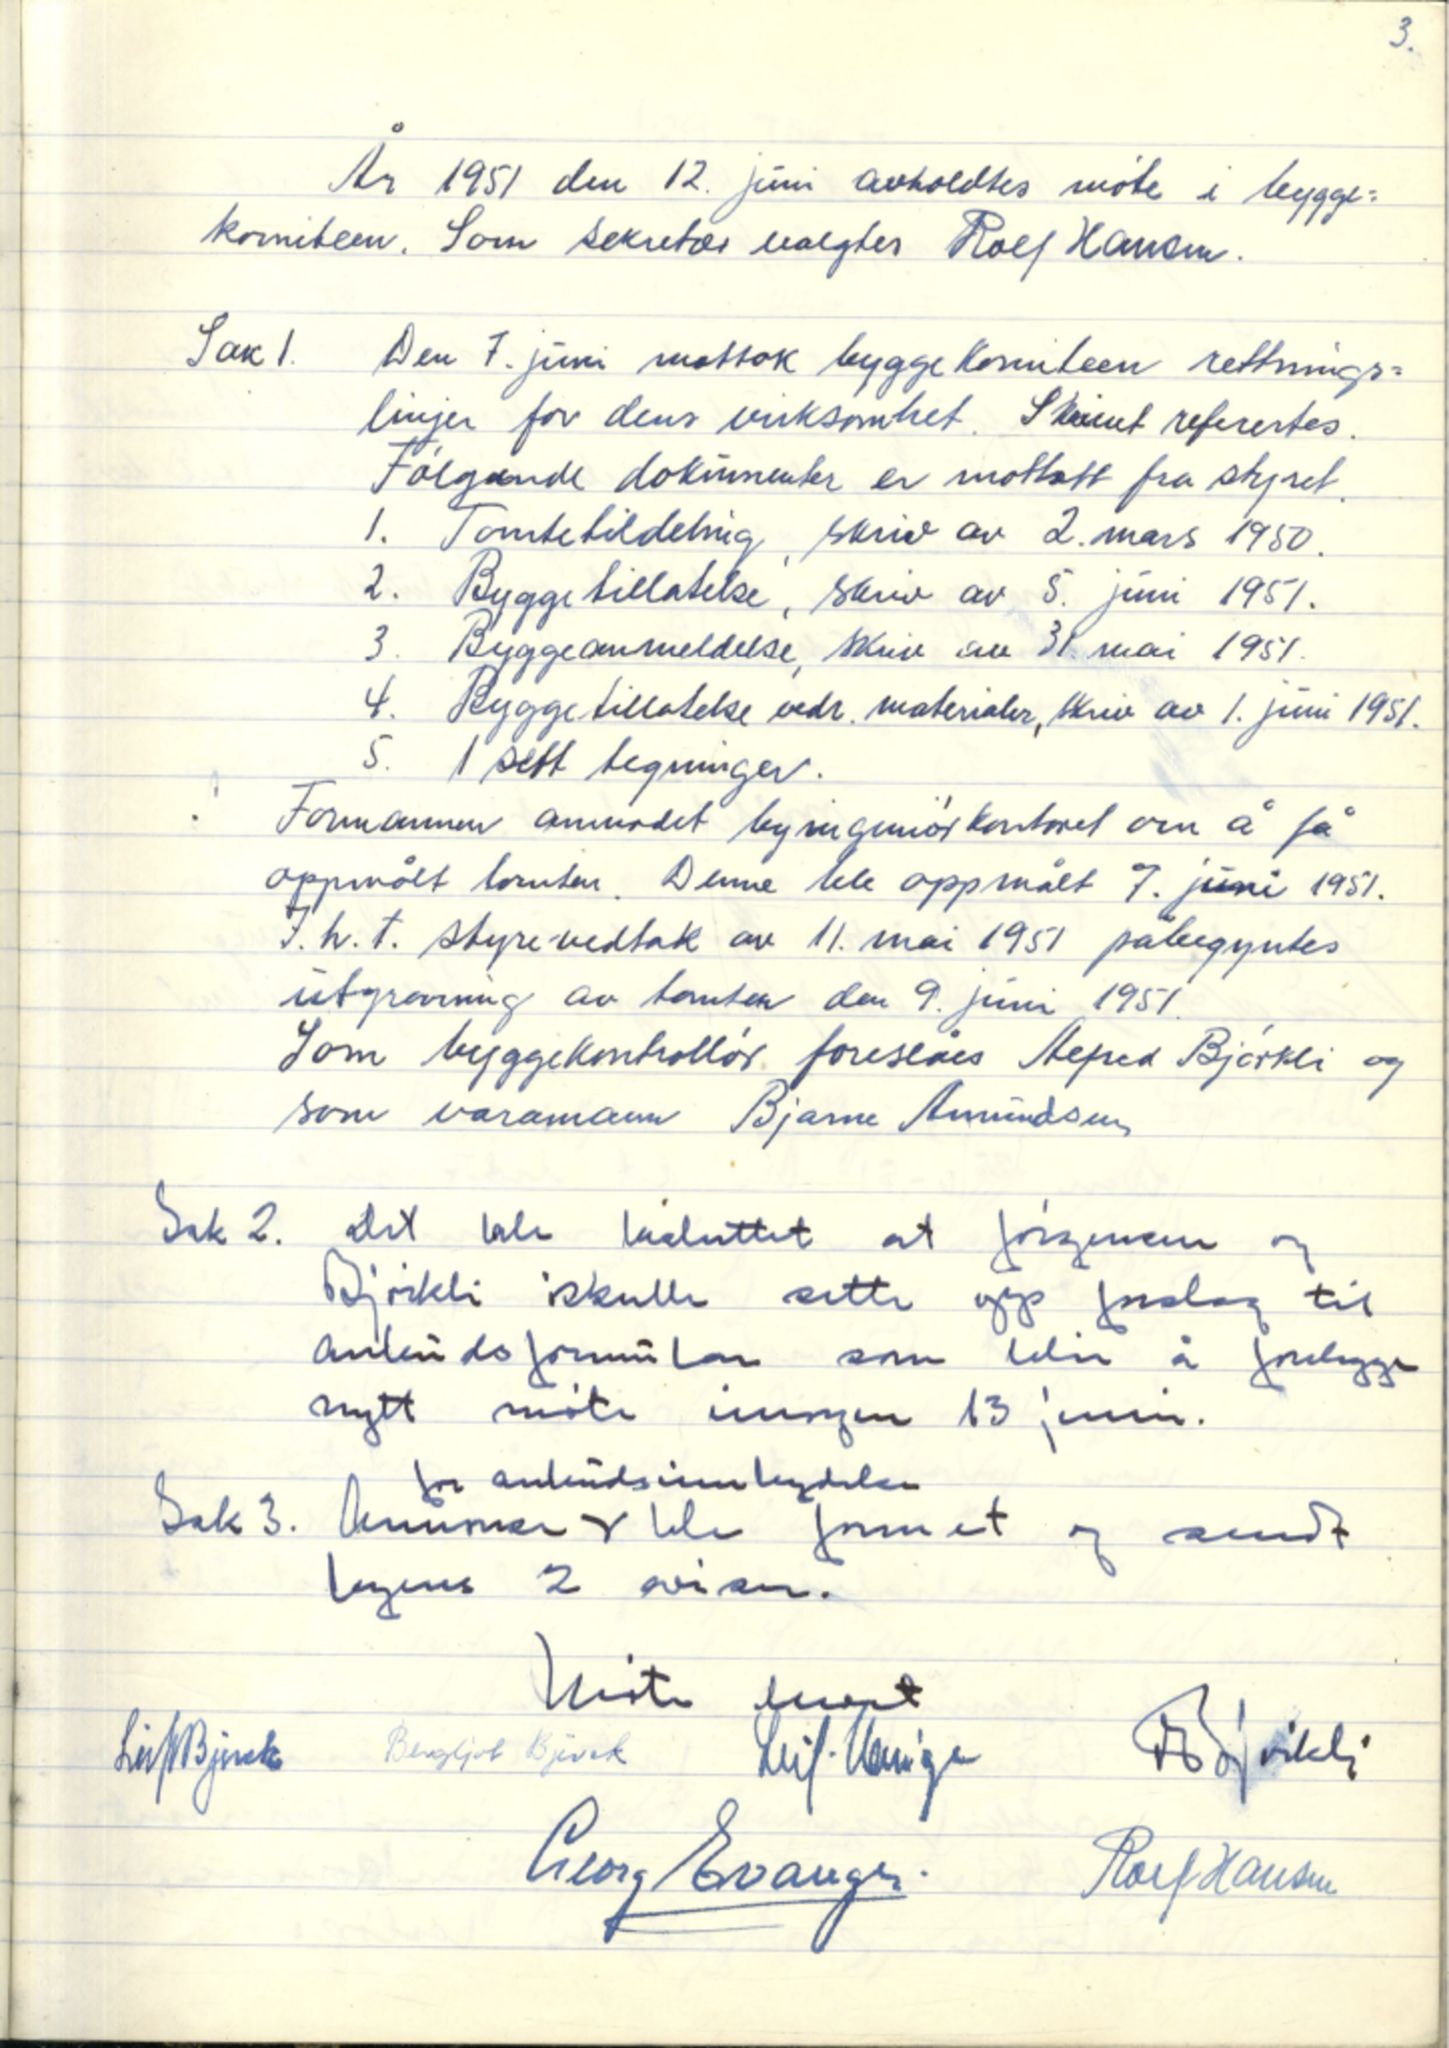 3.
År 1951 den 12. juni avholdtes møte i bygge=
komiteen. Som sekretær valgtes Rolf Hansen.
Sak 1. Den 7. juni mottok byggekomiteen rettnings=
linjer for dens virksomhet. Skrivet referertes.
Følgende dokumenter er mottatt fra styret.
1. Tomtetildeling, skriv av 2. mars 1950.
2. Byggetillatelse, skriv av 5. juni 1951.
3. Byggeanmeldelse, skriv av 31. mai 1951.
4. Byggetillatelse vedr. materialer, skriv av 1. juni 1951.
5. 1 sett tegninger.
Formannen anmodet byingeniørkontoret om å få
oppmålt tomten. Denne ble oppmålt 7. juni 1951.
I.h.t. styrevedtak av 11. mai 1951 påbegyntes
utgravning av tomten den 9. juni 1951.
Som byggekontrollør foreslåes Alfred Bjørkli og
som varamann Bjarne Amundsen
Sak 2. Det ble besluttet at Jørgensen og
Bjørkli skulle sette opp forslag til
anbudsformular som blir å forelegge
nytt møte imorgen 13 juni.
for anbudsinnbydelse
Sak 3. Annonse ble formet og sendt
byens 2 aviser.
Møte hevet
Leif Bjørck Bergljot Bjørck Leif Bjørkli
Georg Evanger. Rolf Hansen